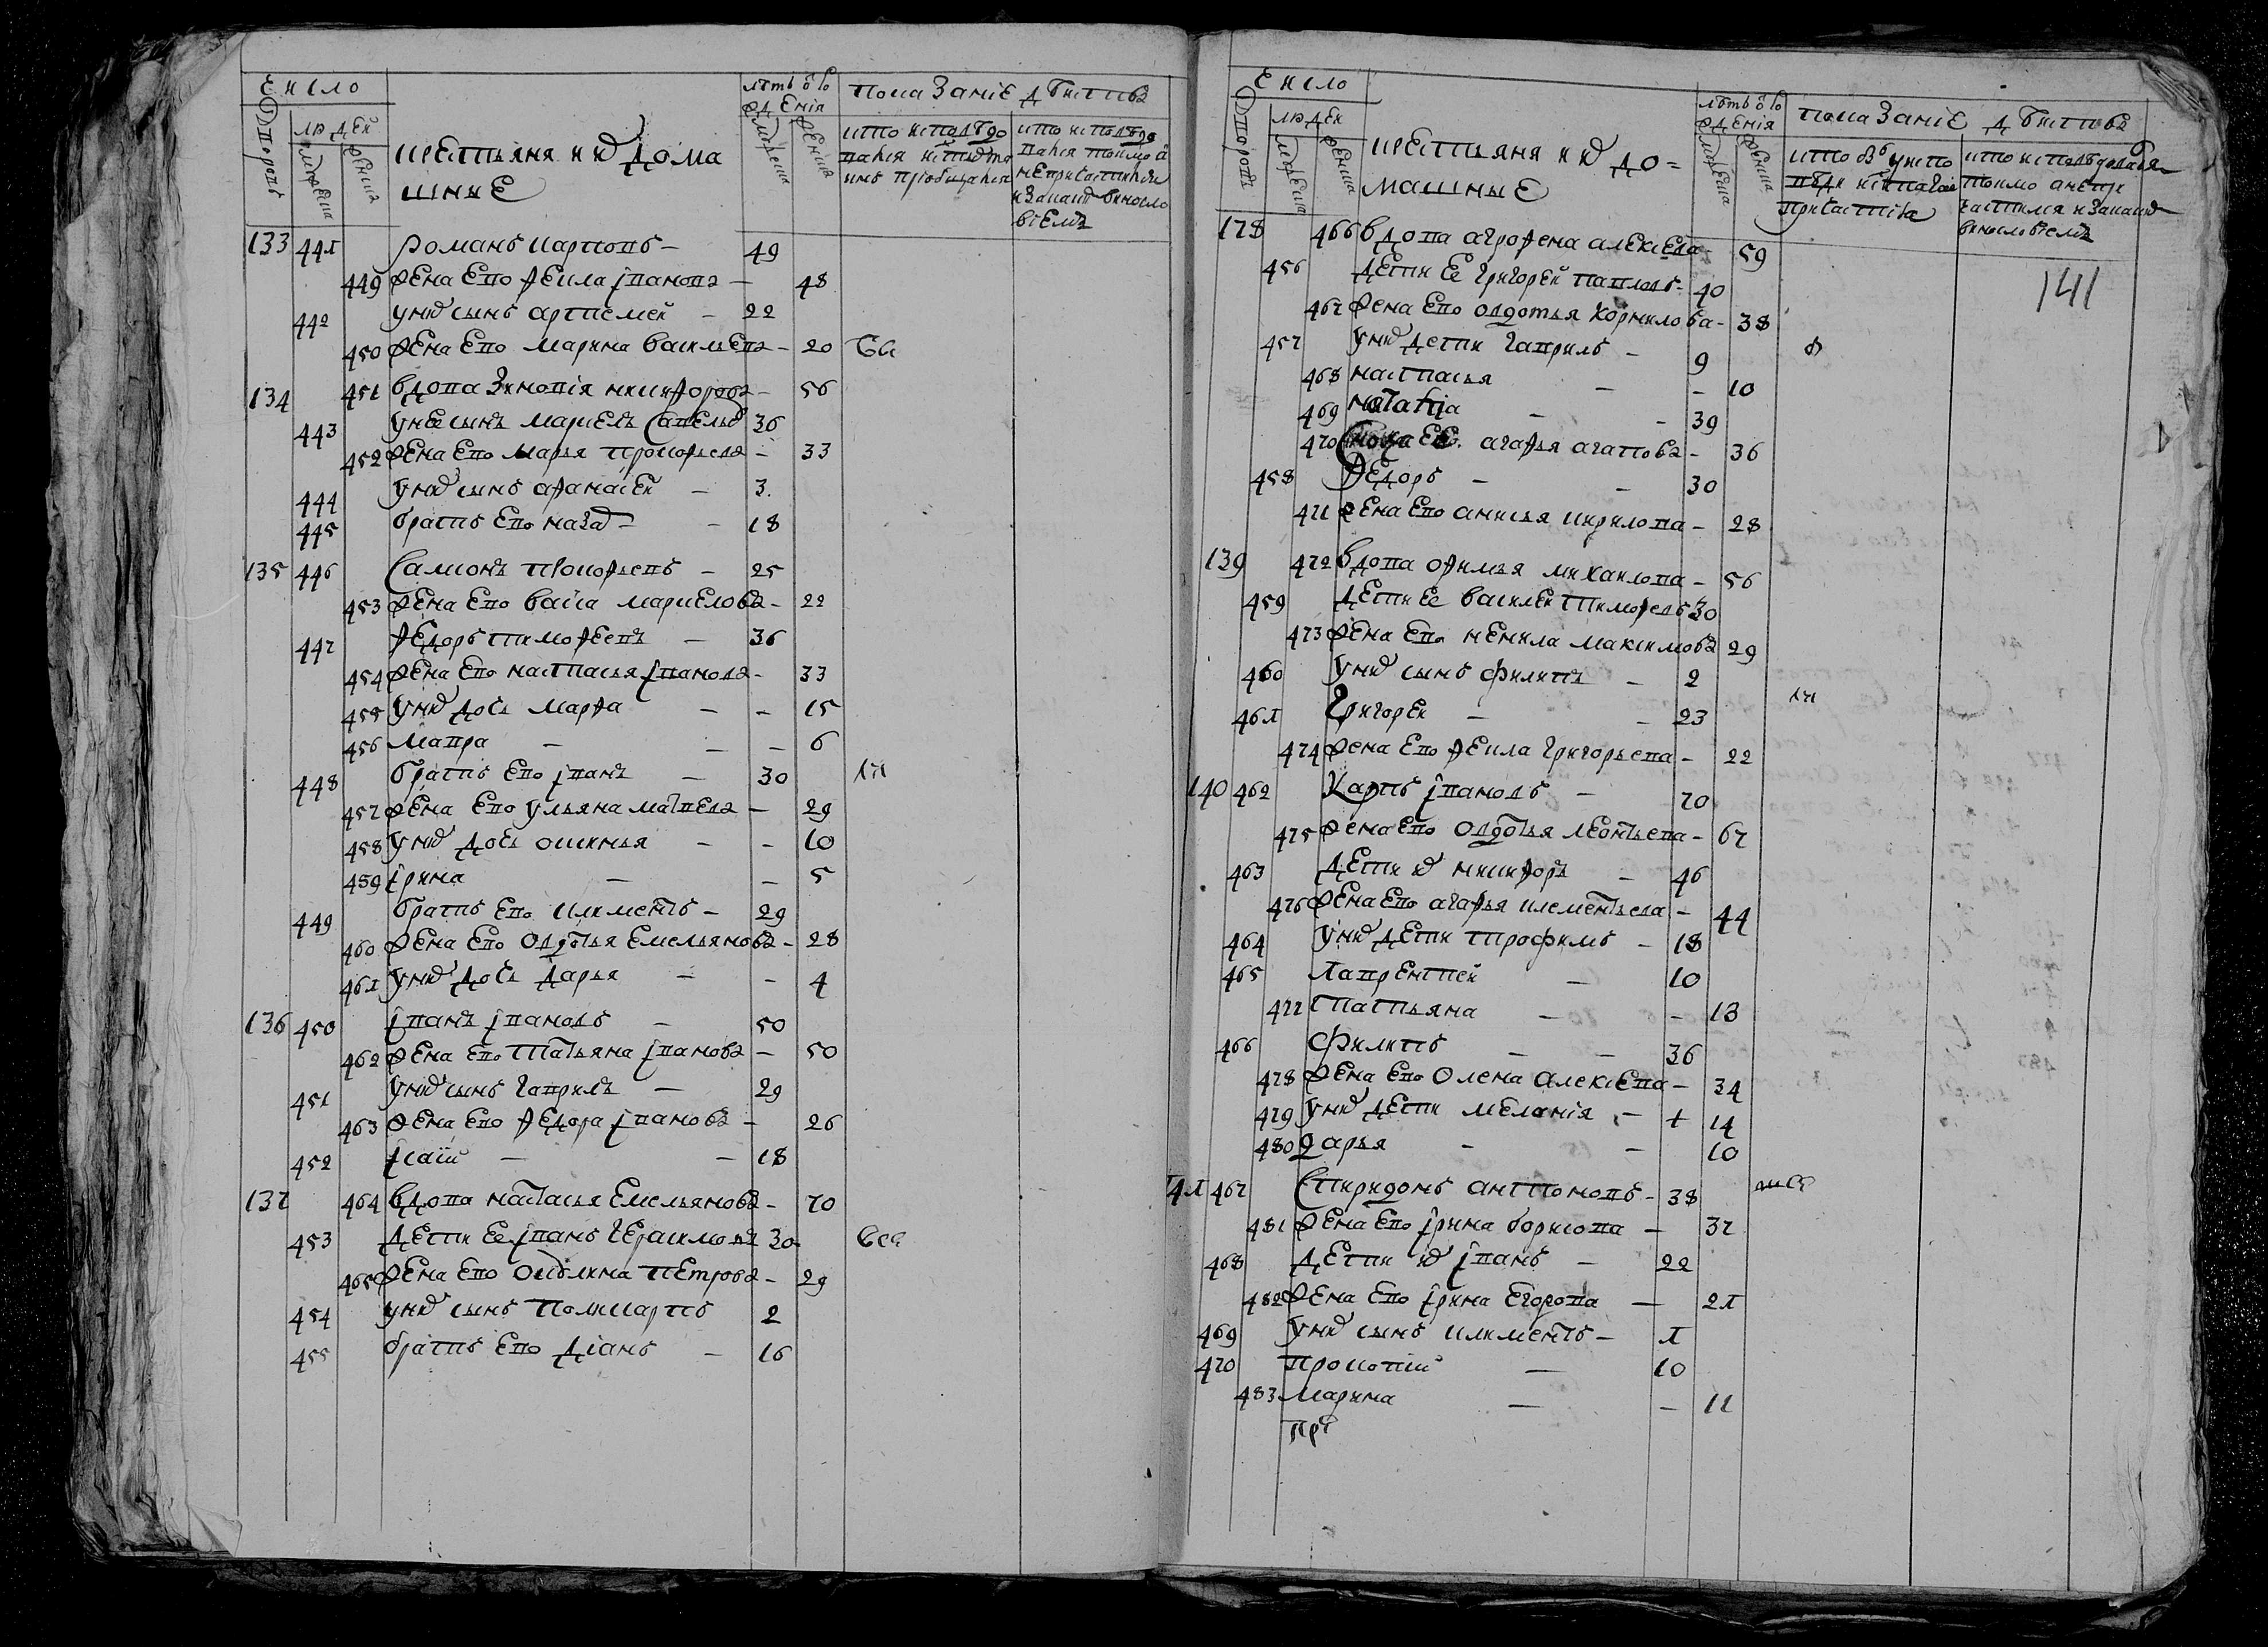 Число
Дворовъ
людей
мужеска
женска
крестьяня и ихъ дома
шные
лѣтъ о рo
жденія
мужеска
женска
показаніе дѣйства
133 441 Романъ Карповъ - 49
449 жена ево Фекла Іванова - 48
442 У них сынъ Артемей - 22
450 жена ево Марина Васильева - 20
134 451 вдова Зиновія Никифорова - 56
443 У нее сынъ Маркелъ Савельевъ 36
452 жена ево Марья Прокофьева - 33
444 У них сынъ Афанасей - 3
445 братъ ево Назаръ - 18
135 446 Самсонъ Прокофьевъ - 25
453 жена ево Васса Маркелова - 22
447 Федоръ Тимофеевъ - 36
454 жена ево Настасья Іванова - 33
455 У них дочь Марфа - - 15
456 Мавра - - - 6
448 братъ ево Іванъ - 30
457 жена ево Ульяна Матвева - 29
458 У них дочь Оксинья - - 10
459 Ірина - - 5
449 братъ ево Климентъ - 29
460 жена ево Овдотья Емельянова - 28
461 У них дочь Дарья - - 4
136 450 Іванъ Івановъ - 50
462 жена ево Татьяна Іванова - 50
451 У них сынъ Гаврилъ - 29
463 жена ево Федора Іванова - 26
452 Ісаій - - 18
137 464 вдова Настасья Емельянова - 70
453 дети ее Іванъ Герасимовъ 30
465 жена ево Окулина Петрова - 29
454 У них сынъ Поликарпъ 2
455 братъ ево Діанъ - 16
Число
Дворовъ
людей
мужеска
женска
крестьяня и ихъ до=
машные
лѣтъ о рo
жденія
мужеска
женска
показаніе дѣйства
141
178 466 вдова Агрофена Алексеева - 59
456 дети ее Григорей Павловъ - 40
467 жена ево Овдотья Корнилова - 38
457 У них дети Гаврилъ - 9
468 Настасья - - 10
469 - - 39
470 Агафья Агапова - 36
458 Федоръ - - 30
471 жена ево Анисья Кирилова - 28
139 472 вдова Офимья Михаилова - 56
459 дети ее Василей Тимофеевъ 30
473 жена ево Ненила Максимова 29
460 У них сынъ Филипъ - 2
461 Григорей - - 23
474 жена ево Фекла Григорьева - 22
140 462 Карпъ Івановъ - 70
475 жена ево Овдотья Леонтьева - 67
463 дети их Никифоръ - 46
476 жена ево Агафья Клементьева - 44
464 У них дети Трофимъ - 18
465 Лаврентей - 10
477 Татьяна - - 13
466 Филипъ - - 36
478 жена ево Олена Алексева - 34
479 У них дети Меланія - + 14
480 Дарья - - 10
141 467 Спиридонъ Антоновъ - 38
481 жена ево Ірина Борисова - 37
468 дети их Іванъ - 22
482 жена ево Ірина Егорова - 21
469 У них сынъ Климентъ - 1
470 Прокопій - 10
483 Марина - - 11